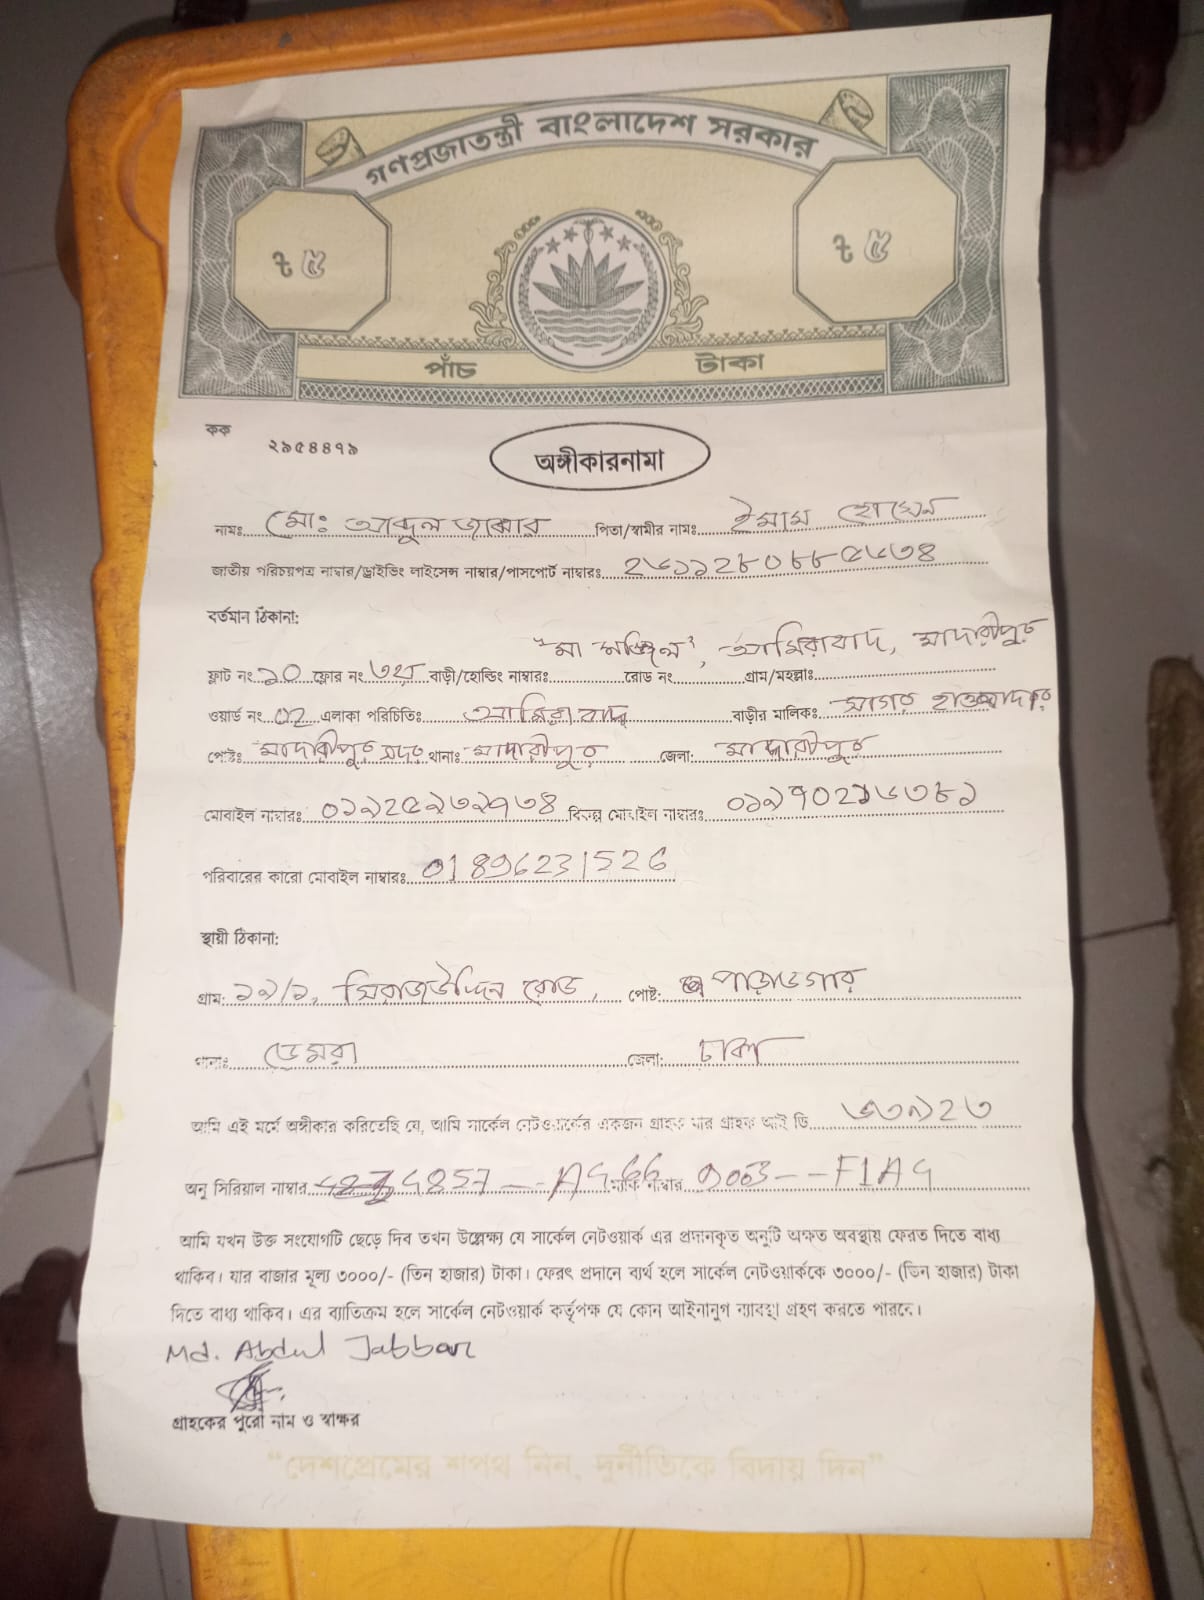 গণপ্রজাতন্ত্রী বাংলাদেশ সরকার
৳ ৫ ৳ ৫
পাঁচ টাকা
কক ২৯৫৪৪৭৯
অঙ্গীকারনামা
নামঃ মোঃ আব্দুল জাব্বার পিতা/স্বামীর নামঃ ইমাম হোসেন
জাতীয় পরিচয়পত্র নাম্বার/ড্রাইভিং লাইসেন্স নাম্বার/পাসপোর্ট নাম্বারঃ
বর্তমান ঠিকানা:
"মা মঞ্জিল", আমিরাবাদ, মাদারীপুর
ফ্লাট নং ১০ ফ্লোর নং ৩য় বাড়ী/হোল্ডিং নাম্বারঃ রোড নং গ্রাম/মহল্লাঃ
ওয়ার্ড নং ০২ এলাকা পরিচিতিঃ আমিরাবাদ বাড়ীর মালিকঃ সাগর হাওলাদার
পোষ্টঃ মাদারীপুর সদর থানাঃ মাদারীপুর জেলা: মাদারীপুর
মোবাইল নাম্বারঃ বিকল্প মোবাইল নাম্বারঃ
পরিবারের কারো মোবাইল নাম্বারঃ 01896231526
স্থায়ী ঠিকানা:
গ্রাম: ১৯/১, সিরাজউদ্দিন রোড, পোষ্ট: পাড়াডগার
থানাঃ ডেমরা জেলা: ঢাকা
আমি এই মর্মে অঙ্গীকার করিতেছি যে, আমি সার্কেল নেটওয়ার্কের একজন গ্রাহক যার গ্রাহক আই ডি ৬৩৯২৩
অনু সিরিয়াল নাম্বার 4857 -- A9 66 ম্যাক নাম্বার -- F1A9
আমি যখন উক্ত সংযোগটি ছেড়ে দিব তখন উল্লেক্ষ্য যে সার্কেল নেটওয়ার্ক এর প্রদানকৃত অনুটি অক্ষত অবস্থায় ফেরত দিতে বাধ্য
থাকিব। যার বাজার মূল্য ৩০০০/- (তিন হাজার) টাকা। ফেরৎ প্রদানে ব্যর্থ হলে সার্কেল নেটওয়ার্ককে ৩০০০/- (তিন হাজার) টাকা
দিতে বাধ্য থাকিব। এর ব্যাতিক্রম হলে সার্কেল নেটওয়ার্ক কর্তৃপক্ষ যে কোন আইনানুগ ব্যাবস্থা গ্রহণ করতে পারবে।
Md. Abdul Jabbar
গ্রাহকের পুরো নাম ও স্বাক্ষর
"দেশপ্রেমের শপথ নিন, দুর্নীতিকে বিদায় দিন"